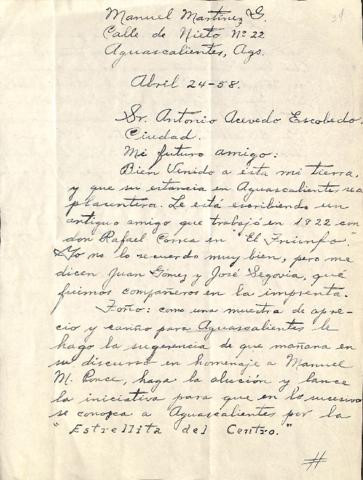 Manuel Martínez G.
Calle de Nieto Nº 22
Aguascalientes, Ags.
Abril 24-58.
Sr. Antonio Acevedo Escobedo.
Ciudad.
Mi futuro amigo:
Bien Venido a ésta mi tierra,
y que su estancia en Aguascalientes sea
placentera. Le está escribiendo un
antiguo amigo que trabajó en 1922 con
don Rafael Correa en "El Triunfo".
Yo no lo recuerdo muy bien, pero me
dicen Juan Gómez y José Segovia, que
fuimos compañeros en la imprenta.
Toño: como una muestra de apre-
cio y cariño para Aguascalientes le
hago la sugerencia de que mañana en
su discurso en homenaje a Manuel
M. Ponce, haga la alusión y lance
la iniciativa para que en lo sucesivo
se conozca a Aguascalientes por la
"Estrellita del Centro."